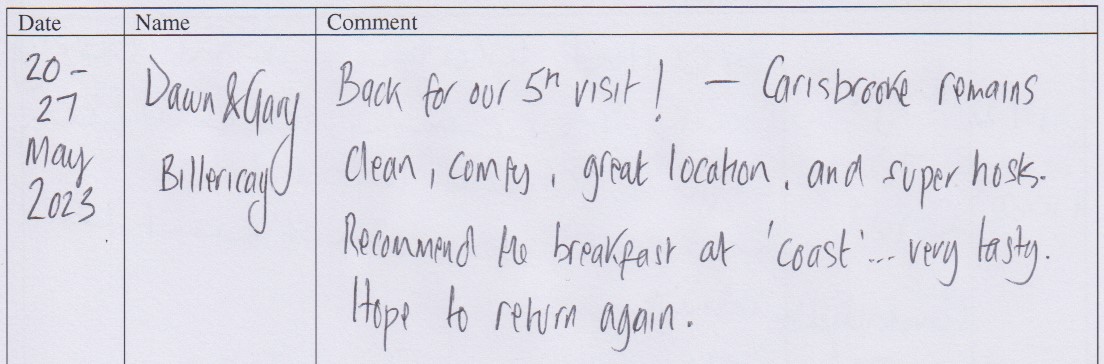 Date Name Comment
20 -
27
May
2023
Dawn & Gary
Billericay
Back for our 5th visit! — Carisbrooke remains
clean, comfy, great location, and super hosts.
Recommend the breakfast at 'coast'... very tasty.
Hope to return again.